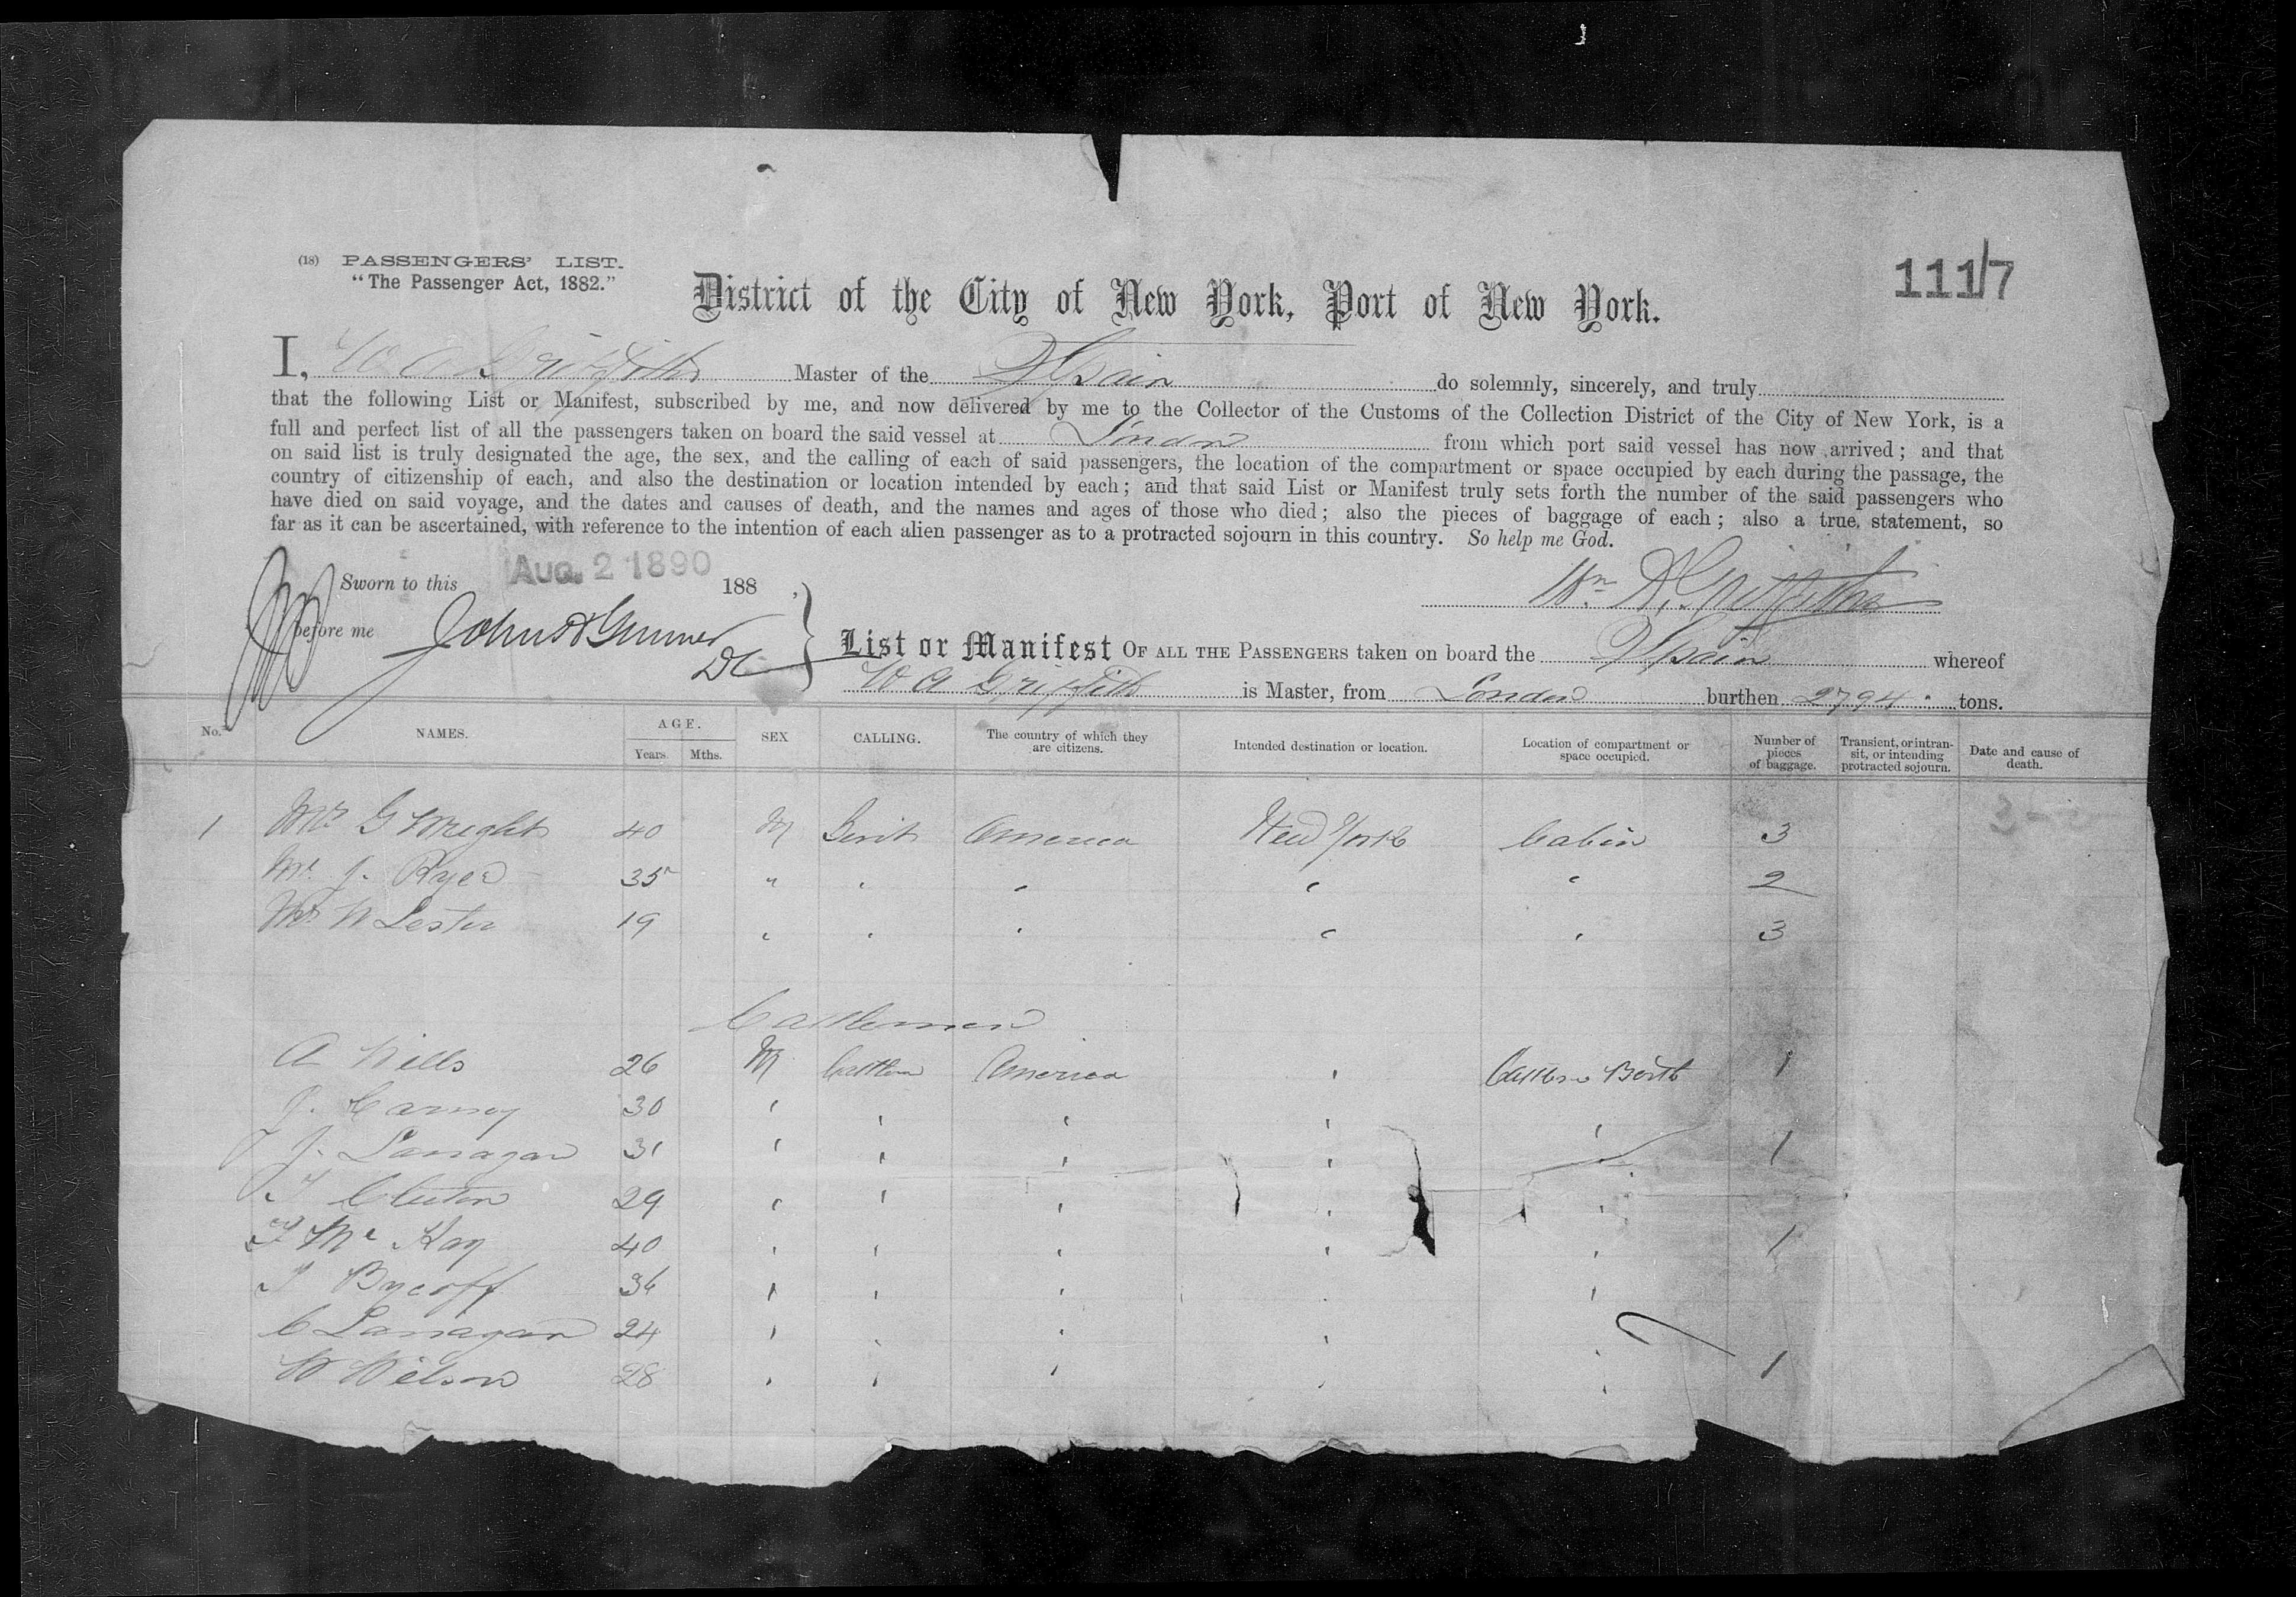 (18) PASSENGERS' LIST.
"The Passenger Act, 1882."
1117
District of the City of New York, Port of New York.
I, W A Griffiths Master of the Spain do solemnly, sincerely, and truly
that the following List or Manifest, subscribed by me, and now delivered by me to the Collector of the Customs of the Collection District of the City of New York, is a
full and perfect list of all the passengers taken on board the said vessel at London from which port said vessel has now arrived; and that
on said list is truly designated the age, the sex, and the calling of each of said passengers, the location of the compartment or space occupied by each during the passage, the
country of citizenship of each, and also the destination or location intended by each; and that said List or Manifest truly sets forth the number of the said passengers who
have died on said voyage, and the dates and causes of death, and the names and ages of those who died; also the pieces of baggage of each; also a true statement, so
far as it can be ascertained, with reference to the intention of each alien passenger as to a protracted sojourn in this country. So help me God.
Sworn to this AUG. 2 1890 188 ,
Wm A Griffiths
before me John
DC
List or Manifest OF ALL THE PASSENGERS taken on board the Spain whereof
W A Griffith is Master, from London burthen 2794 tons.
No. NAMES. AGE. Years. Mths. SEX CALLING. The country of which they are citizens. Intended destination or location. Location of compartment or space occupied. Number of pieces of baggage. Transient, or intransit, or intending protracted sojourn. Date and cause of death.
1 Mr G Wright 40 M America New York Cabin 3
Mr J. 35 " " " " " 2
Mr W Lester 19 " " " " " 3
Cattlemen
A Wills 26 M Cattlem America " Cattlem Berth 1
J. Carney 30 " " " " "
J. Lanagan 31 " " " " " 1
T Cluton 29 " " " " "
T Mc Kay 40 " " " " " 1
T Bycroff 36 " " " " "
C Lanagan 24 " " " " "
W Wilson 28 " " " " " 1